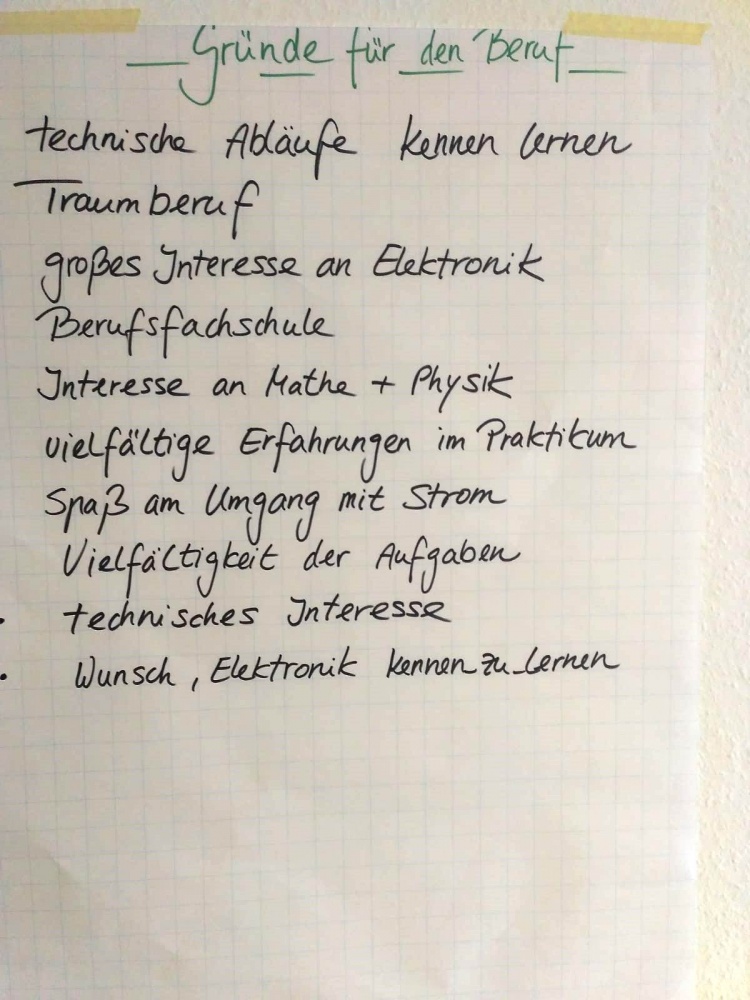 Gründe für den Beruf
technische Abläufe kennen lernen
Traumberuf
großes Interesse an Elektronik
Berufsfachschule
Interesse an Mathe + Physik
vielfältige Erfahrungen im Praktikum
Spaß am Umgang mit Strom
Vielfältigkeit der Aufgaben
• technisches Interesse
• Wunsch, Elektronik kennen zu lernen